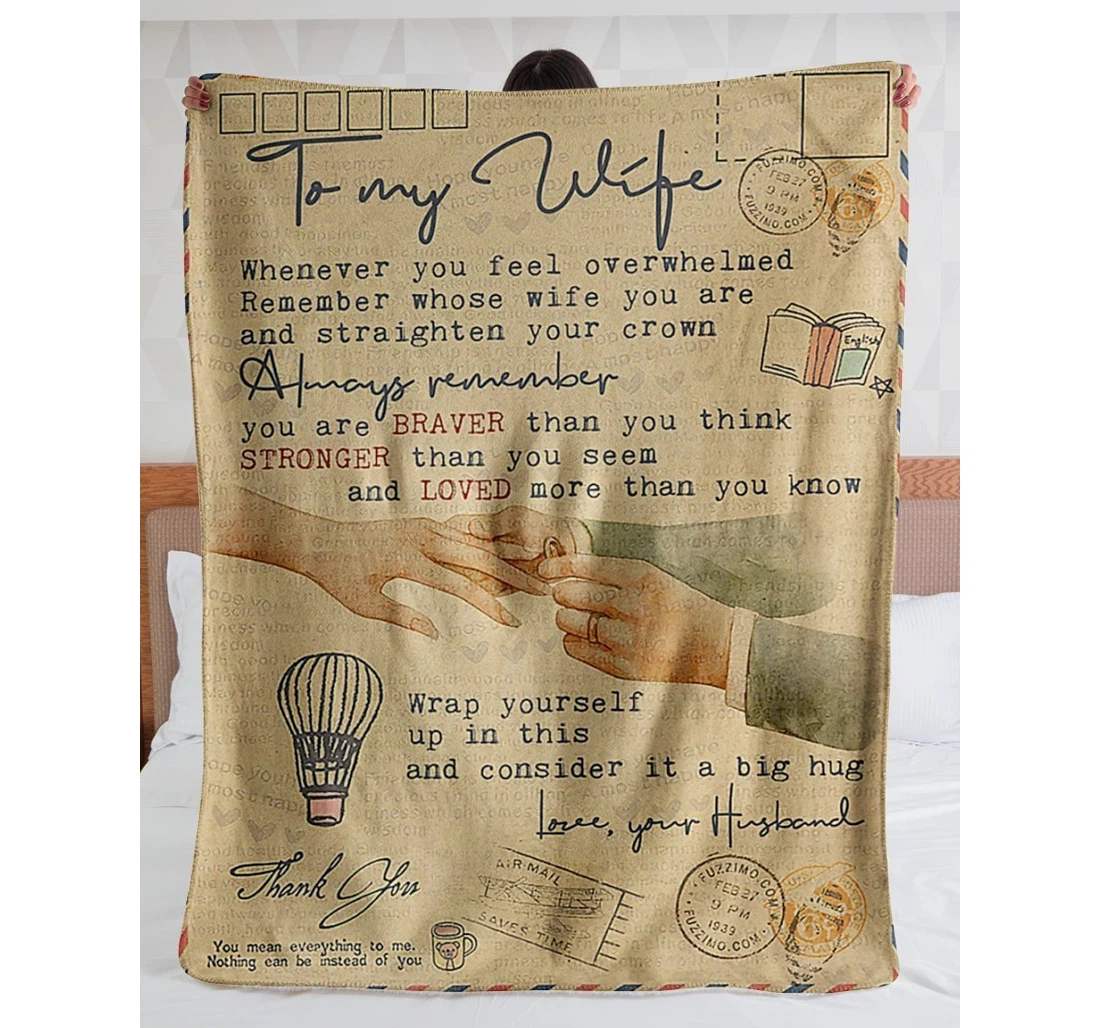 To my Wife
FUZZIMO.COM
FEB 27
9 PM
1939
FUZZIMO.COM
Whenever you feel overwhelmed
Remember whose wife you are
and straighten your crown
English
Always remember
you are BRAVER than you think
STRONGER than you seem
and LOVED more than you know
Wrap yourself
up in this
and consider it a big hug
Love, your Husband
Thank You
AIR MAIL
SAVES TIME
FUZZIMO.COM
FEB 27
9 PM
1939
FUZZIMO.COM
You mean everything to me.
Nothing can be instead of you